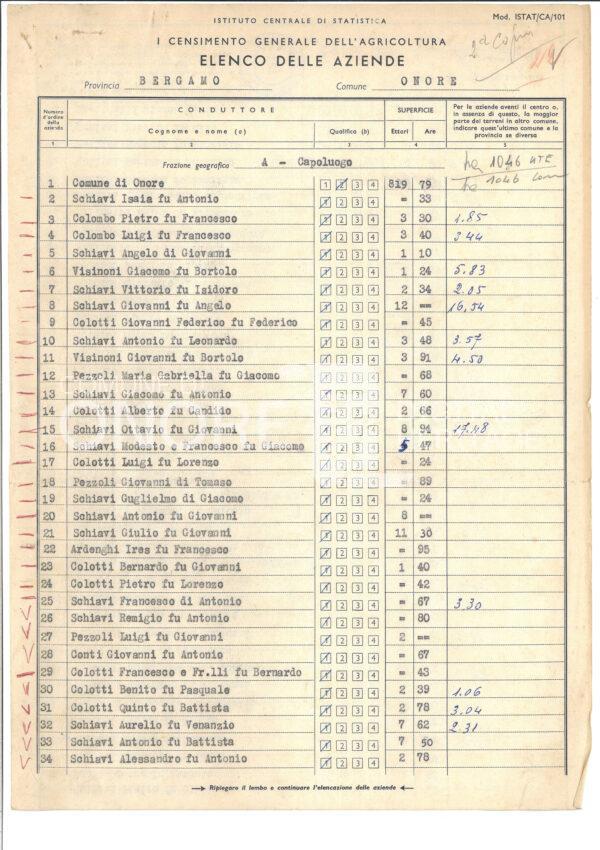 ISTITUTO CENTRALE DI STATISTICA
Mod. ISTAT/CA/101
I CENSIMENTO GENERALE DELL'AGRICOLTURA
2ª Copia
ELENCO DELLE AZIENDE
Provincia BERGAMO Comune ONORE
Numero d'ordine della azienda
CONDUTTORE
Cognome e nome (a)
Qualifica (b)
SUPERFICIE
Ettari Are
Per le aziende aventi il centro o, in assenza di questo, la maggior parte dei terreni in altro comune, indicare quest'ultimo comune e la provincia se diversa
1 2 3 4 5
Frazione geografica A - Capoluogo
ha 1046 UTE
ha 1046 com
1 Comune di Onore 1 2 3 4 819 79
2 Schiavi Isaia fu Antonio 1 2 3 4 = 33
3 Colombo Pietro fu Francesco 1 2 3 4 3 30 1.85
4 Colombo Luigi fu Francesco 1 2 3 4 3 40 3.44
5 Schiavi Angelo di Giovanni 1 2 3 4 1 10
6 Visinoni Giacomo fu Bortolo 1 2 3 4 1 24 5.83
7 Schiavi Vittorio fu Isidoro 1 2 3 4 2 34 2.05
8 Schiavi Giovanni fu Angelo 1 2 3 4 12 == 16,54
9 Colotti Giovanni Federico fu Federico 1 2 3 4 = 45
10 Schiavi Antonio fu Leonardo 1 2 3 4 3 48 3.57
11 Visinoni Giovanni fu Bortolo 1 2 3 4 3 91 4.50
12 Pezzoli Maria Gabriella fu Giacomo 1 2 3 4 = 68
13 Schiavi Giacomo fu Antonio 1 2 3 4 7 60
14 Colotti Alberto fu Candido 1 2 3 4 2 66
15 Schiavi Ottavio fu Giovanni 1 2 3 4 8 94 17.48
16 Schiavi Modesto e Francesco fu Giacomo 1 2 3 4 5 47
17 Colotti Luigi fu Lorenzo 1 2 3 4 = 24
18 Pezzoli Giovanni di Tomaso 1 2 3 4 = 89
19 Schiavi Guglielmo di Giacomo 1 2 3 4 = 24
20 Schiavi Antonio fu Giovanni 1 2 3 4 8 ==
21 Schiavi Giulio fu Giovanni 1 2 3 4 11 30
22 Ardenghi Ires fu Francesco 1 2 3 4 = 95
23 Colotti Bernardo fu Giovanni 1 2 3 4 1 40
24 Colotti Pietro fu Lorenzo 1 2 3 4 = 42
25 Schiavi Francesco di Antonio 1 2 3 4 = 67 3.30
26 Schiavi Remigio fu Antonio 1 2 3 4 = 80
27 Pezzoli Luigi fu Giovanni 1 2 3 4 2 ==
28 Conti Giovanni fu Antonio 1 2 3 4 = 67
29 Colotti Francesco e Fr.lli fu Bernardo 1 2 3 4 = 43
30 Colotti Benito fu Pasquale 1 2 3 4 2 39 1.06
31 Colotti Quinto fu Battista 1 2 3 4 2 78 3.04
32 Schiavi Aurelio fu Venanzio 1 2 3 4 7 62 2.31
33 Schiavi Antonio fu Battista 1 2 3 4 7 50
34 Schiavi Alessandro fu Antonio 1 2 3 4 2 78
Ripiegare il lembo e continuare l'elencazione delle aziende